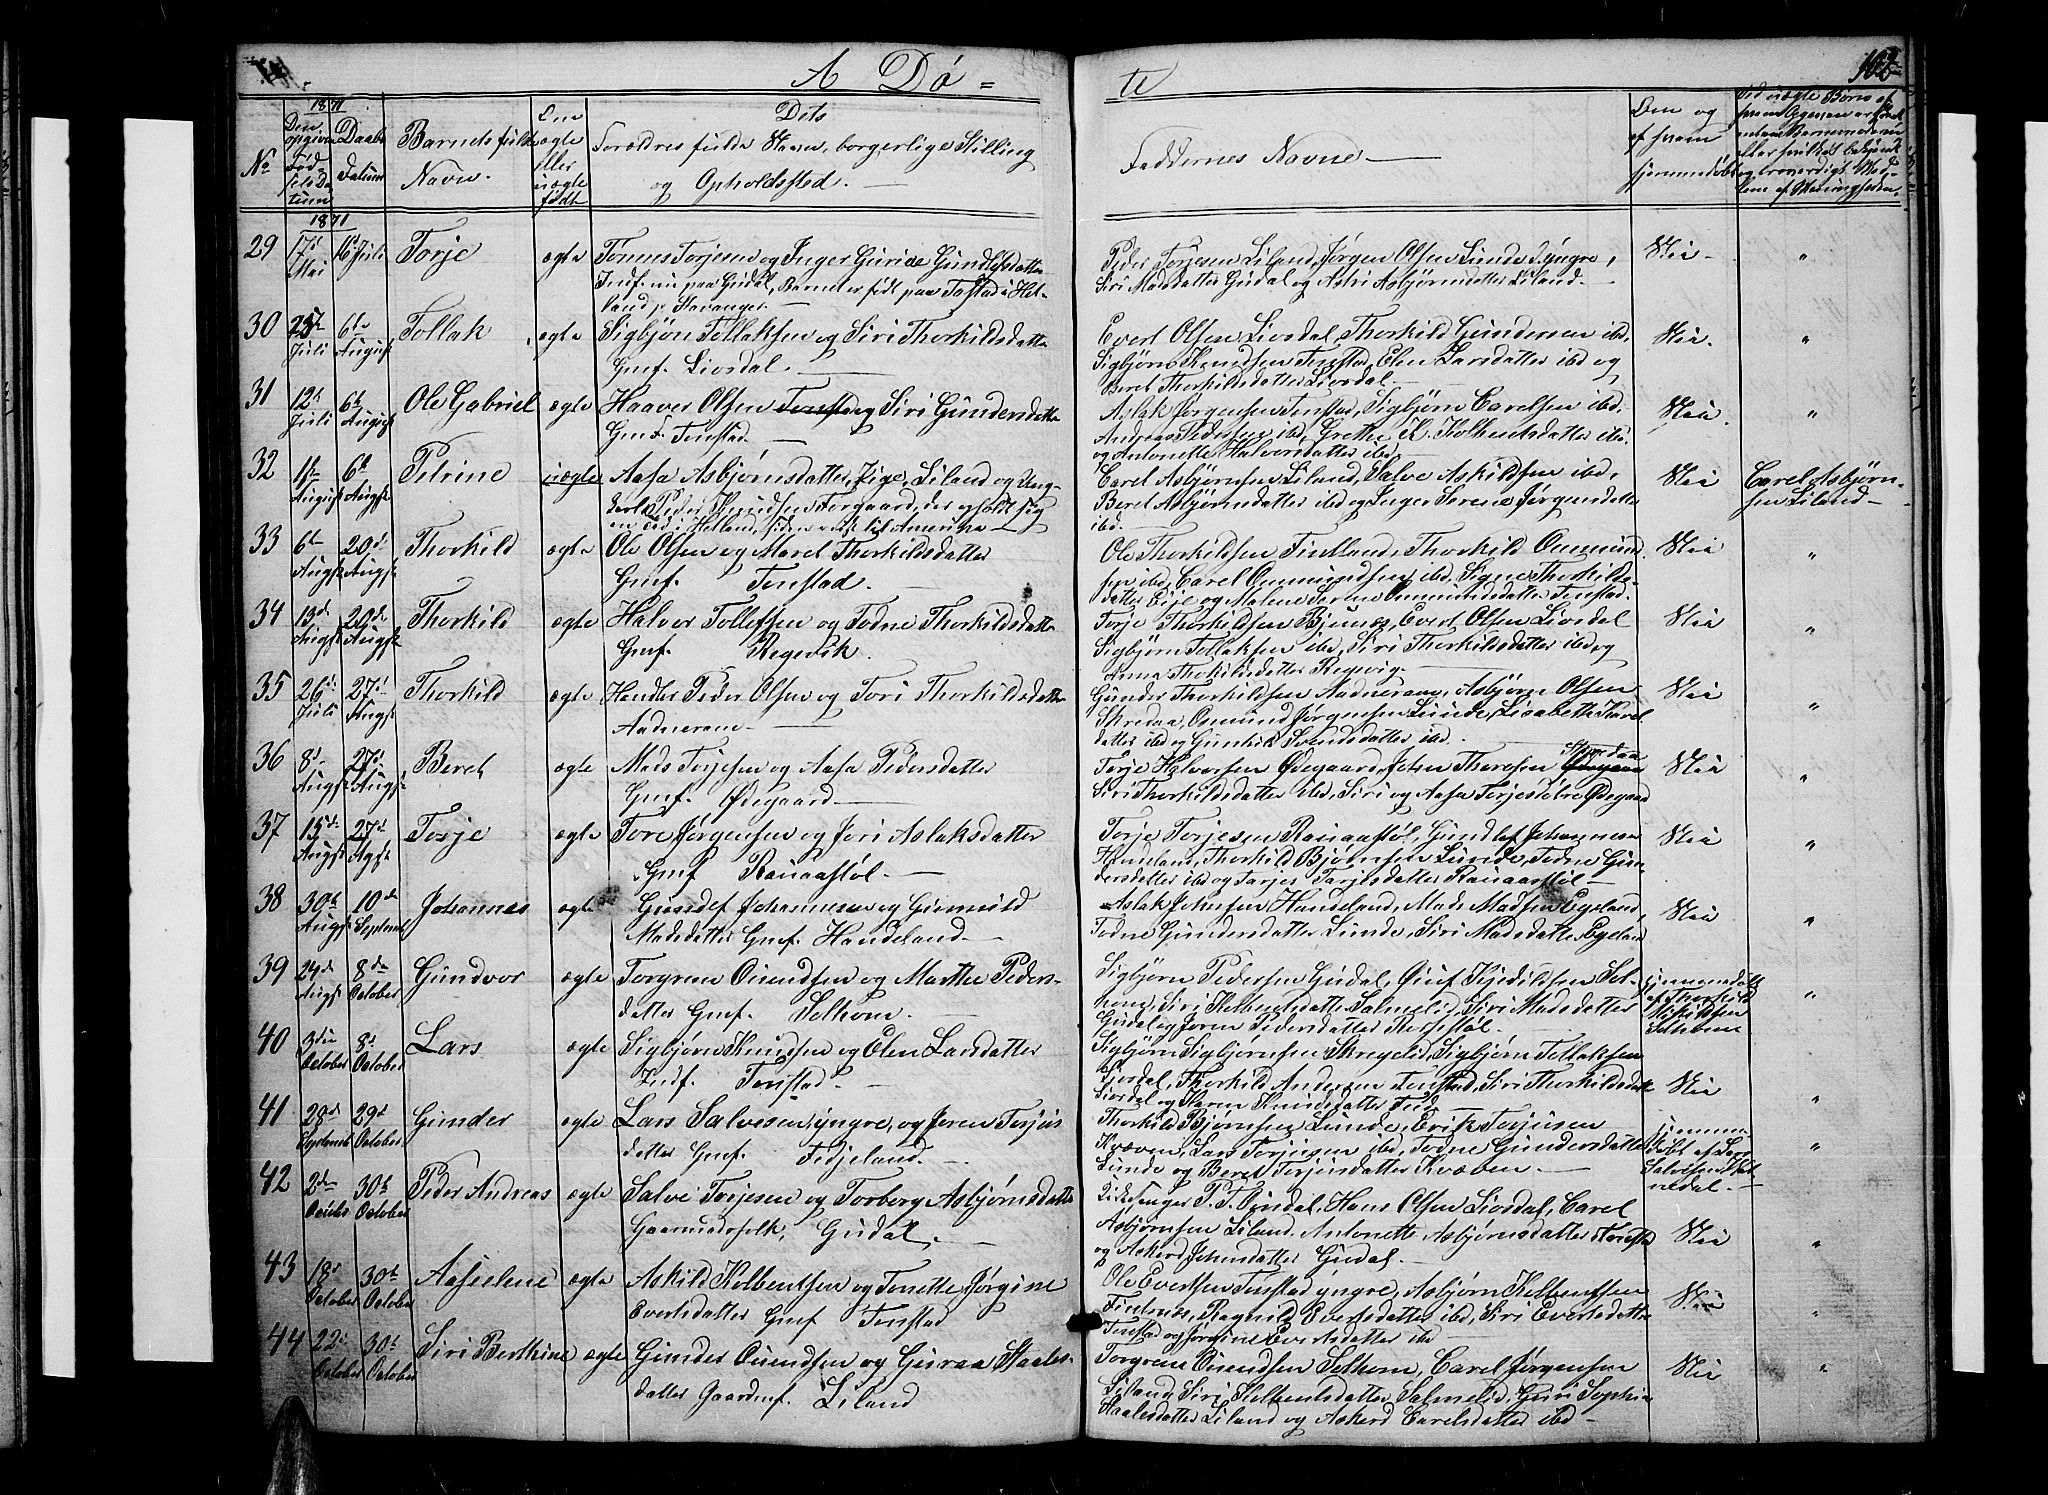 A Dø=
te
102
1871
No
Den opgivne Fødselsdatum
Daabs Datum
Barnets fulde Navn.
Om ægte eller uægte født
Dets
Forældres fulde Navn, borgerlige Stilling
og Opholdssted.
Faddernes Navne
Om og af hvem hjemmedøbt
1871
29 17de Mai 16de Juli Torje ægte Tønnes Torjesen og Inger Guride Gundlefsdatter
Indf. nu paa Gudal, Barnet er født paa Tostad i Hel-
land p. Stavanger.
Peder Torjesen Liland, Jørgen Olsen Lunde Yngre,
Siri Madsdatter Gudal og Astri Asbjørnsdatter Liland. Nei "
30 25de Juli 6te August Tollak ægte Sigbjørn Tollaksen og Siri Thorkildsdatter
Gmf. Liosdal.
Evert Olsen Liosdal, Thorkild Gundersen ibd,
Sigbjørn Knudsen Tonstad, Elen Larsdatter ibd og
Beret Thorkildsdatter Liosdal Nei. "
31 12te Juli 6te August Ole Gabriel ægte Haaver Olsen Tonstad og Siri Gundersdatter
Gmf. Tonstad
Aslak Jørgensen Tonstad, Sigbjørn Carelsen ibd,
Andreas Pedersen ibd, Grethe K. Kolbentsdatter ibd.
og Antonette Halvorsdatter ibd. Nei "
32 1ste August 6te Augst Petrine uægte Aasa Asbjørnsdatter, Pige, Liland og Ung-
karl Peder Knudsen Forgaard, der opholdt sig
en Tid i Helland, siden reist til Amerika
Carel Asbjørnsen Liland, Salve Askildsen ibd,
Beret Asbjørnsdatter ibd og Inger Serene Jørgensdatter
ibd. Nei Carel Asbjørn-
sen Liland
33 6te Augst 20de Augst Thorkild ægte Ole Olsen og Maret Thorkildsdatter
Gmf. Tonstad.
Ole Thorkildsen Fintland, Thorkild Ommund-
sen ibd, Carel Ommundsen ibd, Signe Thorkilds-
datter Eije og Malene Serene Ommundsdatter Tonstad. Nei "
34 13de Augst 20de Augst Thorkild ægte Halvor Tollefsen og Todne Thorkildsdatter
Gmf. Regevik.
Torje Thorkildsen Bjunes, Evert Olsen Liosdal
Sigbjørn Tollaksen ibd, Siri Thorkildsdatter ibd og
Anna Thorkildsdatter Regevig. Nei "
35 26de Juli 27de Augst Thorkild ægte Handler Peder Olsen og Tori Thorkildsdatter
Aadneram
Gunder Thorkildsen Aadneram, Asbjørn Olsen
Skredaa, Osmund Jørgensen Lunde, Lisabeth Karel
datter ibd og Gunhild Svendsdatter ibd. Nei "
36 8de Augst 27de Augst Beret ægte Mads Torjesen og Aasa Pedersdatter
Gmf. Ødegaard
Torje Halvorsen Ødegaard, John Thoresen Skredaa
Siri Thorkildsdatter ibd, Siri og Aasa Torjesdøtre Ødegaard Nei "
37 15de Augst 27de Agst Torje ægte Tore Jørgensen og Jori Aslaksdatter
Gmf Rauaastøl.
Torje Torjesen Rauaastøl, Gundlef Johannesen
Handeland, Thorkild Bjørnsen Lunde, Todne Gun-
dersdatter ibd og Tarjer Tarjesdatter Rauaastøl Nei "
38 30te Augst 10de Septemb Johannes ægte Gundlef Johannesen og Gunvild
Madsdatter Gmf. Handeland
Aslak Johnsen Handeland, Mads Madsen Egeland,
Todne Gundersdatter Lunde, Siri Madsdatter Egeland Nei "
39 24de Augst 8de October Gundvor ægte Torgrim Ouendsen og Marthe Peders-
datter Gmf. Selhom.
Sigbjørn Pedersen Gudal, Gjuf Kjetilsen Sel-
hom, Siri Kolbentsdatter Salmelid, Siri Madsdatter
Gudal og Joren Pedersdatter Thorsstøl. Hjemmedøbt
af Thorkild
Mikalsen
Selhom "
40 3die October 8de October Lars ægte Sigbjørn Knudsen og Elen Larsdatter
Indf. Tonstad.
Sigbjørn Sigbjørnsen Skregelid, Sigbjørn Tollaksen
Liosdal, Thorkild Andersen Tonstad, Siri Thorkildsdatter
Liosdal og Karen Knudsdatter Nei "
41 28de Septemb 29de October Gunder ægte Lars Salvesen, yngre, og Joren Torjus
datter Gmf. Fidjeland.
Thorkild Bjørnsen Lunde, Erik Torjusen
Kvæven, Lars Torjusen ibd, Todne Gundersdatter
Lunde og Beret Torjusdatter Kvæven. hjemme-
døbt af Lars
Salvesen
nedal. "
42 2den October 30te October Peder Andreas ægte Salve Torjesen og Torborg Asbjørnsdatter
Gaardmandsfolk, Gudal.
Kirkesanger P. T. Ousdal, Hans Olsen Liosdal, Carel
Asbjørnsen Liland, Antonette Asbjørnsdatter
og Askerd Johnsdatter Gudal. Nei "
43 18de October 30te October Aaselene ægte Askild Kolbentsen og Tonette Jørgine
Evertsdatter Gmf Tonstad
Ole Evertsen Tonstad yngre, Asbjørn Kolbentsen
Ragnild Evertsdatter ibd, Siri Evertsdatter
Tonstad og Jørgine Evertsdatter ibd Nei "
44 22de October 30te October Siri Berthine ægte Gunder Ouendsen og Guraa Staales-
datter Gaardmf. Liland
Torgrim Ouendsen Selhom, Carel Jørgensen
Liland, Siri Kolbentsdatter Salmelid, Guri Sophie
Staalesdatter Liland og Askerd Carelsdatter ibd Nei "